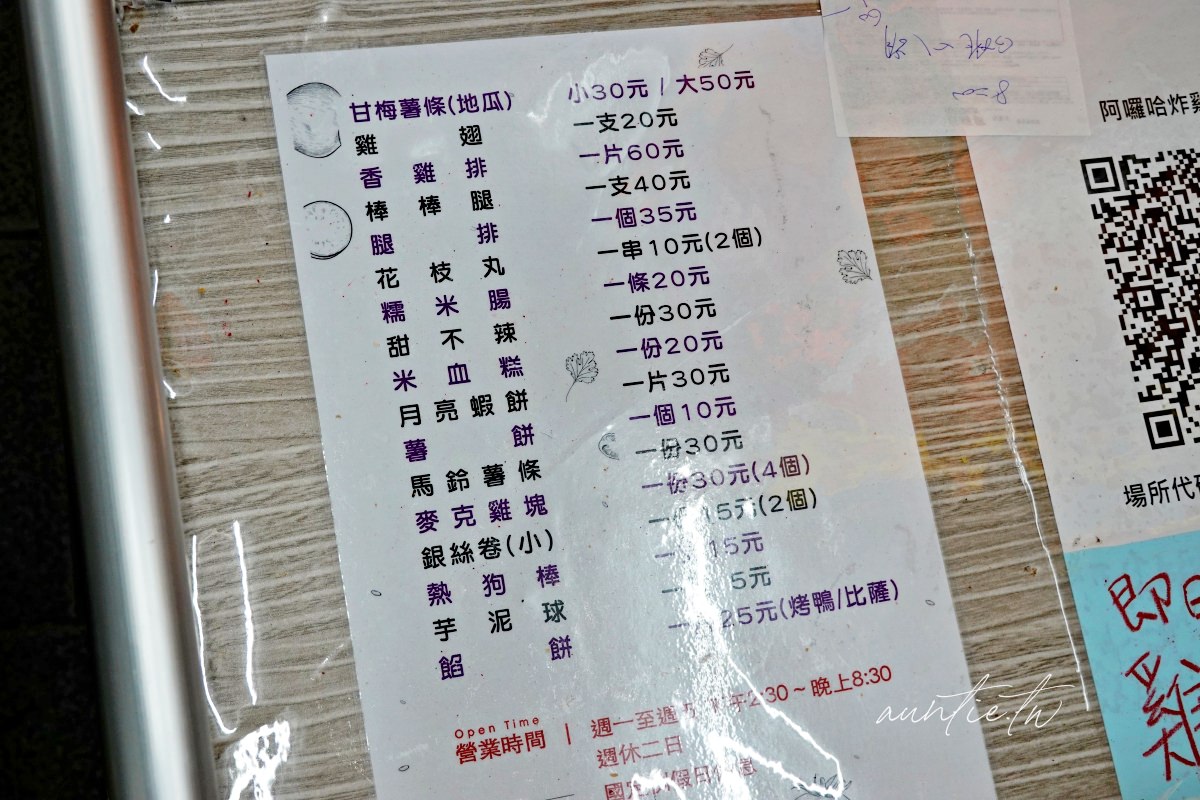 甘梅薯條(地瓜) 小30元 / 大50元
雞翅 一支20元
香雞排 一片60元
棒棒腿 一支40元
腿排 一個35元
花枝丸 一串10元(2個)
糯米腸 一條20元
甜不辣 一份30元
米血糕 一份20元
月亮蝦餅 一片30元
薯餅 一個10元
馬鈴薯條 一份30元
麥克雞塊 一份30元(4個)
銀絲卷(小) 15元(2個)
熱狗棒 15元
芋泥球 5元
餡餅 25元(烤鴨/比薩)
Open Time
營業時間 | 週一至週 午2:30~晚上8:30
週休二日
國定 假日
阿囉哈炸雞
場所代碼
即日
雞
auntie.tw